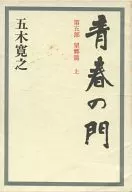 青春の門
第五部 望郷篇 上
五木寛之